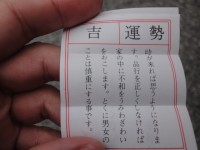 運勢
吉
時が来れば想うようになりま
す。品行を正しくしなければ
家の中に不和をきみわざわい
をおこします。とくに男女の
ことは慎重にする事です。